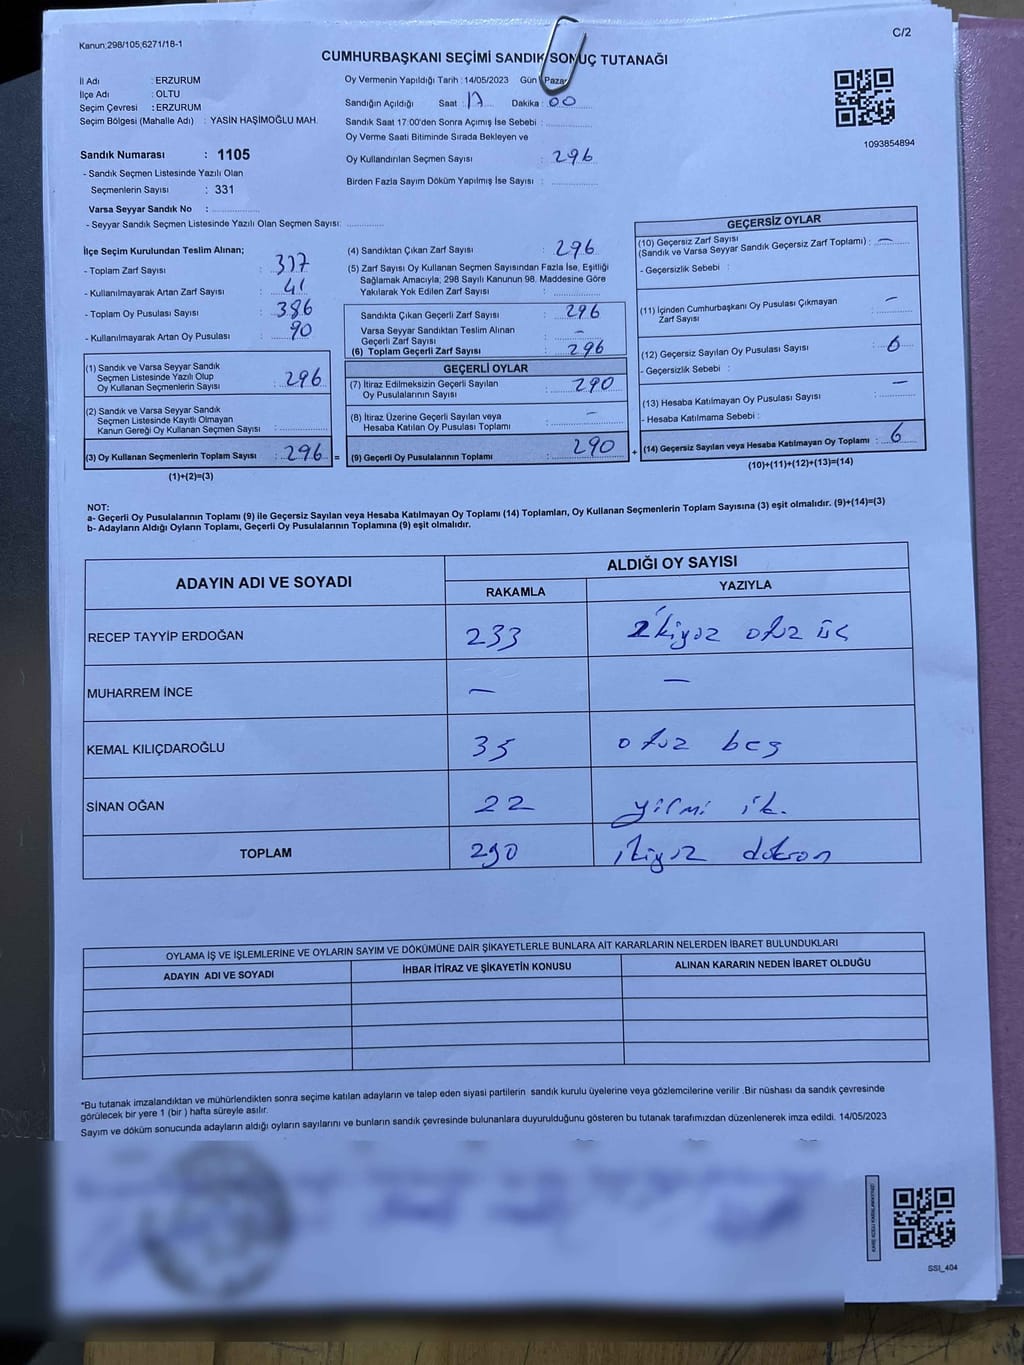 Kanun:298/105,6271/18-1
C/2
CUMHURBAŞKANI SEÇİMİ SANDIK SONUÇ TUTANAĞI
İl Adı : ERZURUM
İlçe Adı : OLTU
Seçim Çevresi : ERZURUM
Seçim Bölgesi (Mahalle Adı) : YASİN HAŞİMOĞLU MAH.
Sandık Numarası : 1105
- Sandık Seçmen Listesinde Yazılı Olan
Seçmenlerin Sayısı : 331
Varsa Seyyar Sandık No :
- Seyyar Sandık Seçmen Listesinde Yazılı Olan Seçmen Sayısı:
Oy Vermenin Yapıldığı Tarih : 14/05/2023 Gün : Pazar
Sandığın Açıldığı Saat : 17 Dakika : 00
Sandık Saat 17:00'den Sonra Açımış İse Sebebi :
Oy Verme Saati Bitiminde Sırada Bekleyen ve
Oy Kullandırılan Seçmen Sayısı : 296
Birden Fazla Sayım Döküm Yapılmış İse Sayısı :
1093854894
İlçe Seçim Kurulundan Teslim Alınan;
- Toplam Zarf Sayısı : 337
- Kullanılmayarak Artan Zarf Sayısı : 41
- Toplam Oy Pusulası Sayısı : 386
- Kullanılmayarak Artan Oy Pusulası : 90
(1) Sandık ve Varsa Seyyar Sandık
Seçmen Listesinde Yazılı Olup
Oy Kullanan Seçmenlerin Sayısı : 296
(2) Sandık ve Varsa Seyyar Sandık
Seçmen Listesinde Kayıtlı Olmayan
Kanun Gereği Oy Kullanan Seçmen Sayısı :
(3) Oy Kullanan Seçmenlerin Toplam Sayısı : 296 =
(1)+(2)=(3)
(4) Sandıktan Çıkan Zarf Sayısı : 296
(5) Zarf Sayısı Oy Kullanan Seçmen Sayısından Fazla İse, Eşitliği
Sağlamak Amacıyla, 298 Sayılı Kanunun 98. Maddesine Göre
Yakılarak Yok Edilen Zarf Sayısı :
Sandıkta Çıkan Geçerli Zarf Sayısı : 296
Varsa Seyyar Sandıktan Teslim Alınan
Geçerli Zarf Sayısı : –
(6) Toplam Geçerli Zarf Sayısı : 296
GEÇERLİ OYLAR
(7) İtiraz Edilmeksizin Geçerli Sayılan
Oy Pusulalarının Sayısı : 290
(8) İtiraz Üzerine Geçerli Sayılan veya
Hesaba Katılan Oy Pusulası Toplamı : –
(9) Geçerli Oy Pusulalarının Toplamı : 290 +
GEÇERSİZ OYLAR
(10) Geçersiz Zarf Sayısı
(Sandık ve Varsa Seyyar Sandık Geçersiz Zarf Toplamı) : –
- Geçersizlik Sebebi :
(11) İçinden Cumhurbaşkanı Oy Pusulası Çıkmayan
Zarf Sayısı : –
(12) Geçersiz Sayılan Oy Pusulası Sayısı : 6
- Geçersizlik Sebebi :
(13) Hesaba Katılmayan Oy Pusulası Sayısı : –
- Hesaba Katılmama Sebebi :
(14) Geçersiz Sayılan veya Hesaba Katılmayan Oy Toplamı : 6
(10)+(11)+(12)+(13)=(14)
NOT:
a- Geçerli Oy Pusulalarının Toplamı (9) ile Geçersiz Sayılan veya Hesaba Katılmayan Oy Toplamı (14) Toplamları, Oy Kullanan Seçmenlerin Toplam Sayısına (3) eşit olmalıdır. (9)+(14)=(3)
b- Adayların Aldığı Oyların Toplamı, Geçerli Oy Pusulalarının Toplamına (9) eşit olmalıdır.
ADAYIN ADI VE SOYADI
ALDIĞI OY SAYISI
RAKAMLA YAZIYLA
RECEP TAYYİP ERDOĞAN 233 ikiyüz otuz üç
MUHARREM İNCE – –
KEMAL KILIÇDAROĞLU 35 otuz beş
SİNAN OĞAN 22 yirmi iki
TOPLAM 290 ikiyüz doksan
OYLAMA İŞ VE İŞLEMLERİNE VE OYLARIN SAYIM VE DÖKÜMÜNE DAİR ŞİKAYETLERLE BUNLARA AİT KARARLARIN NELERDEN İBARET BULUNDUKLARI
ADAYIN ADI VE SOYADI İHBAR İTİRAZ VE ŞİKAYETİN KONUSU ALINAN KARARIN NEDEN İBARET OLDUĞU
*Bu tutanak imzalandıktan ve mühürlendikten sonra seçime katılan adayların ve talep eden siyasi partilerin sandık kurulu üyelerine veya gözlemcilerine verilir .Bir nüshası da sandık çevresinde
görülecek bir yere 1 (bir ) hafta süreyle asılır.
Sayım ve döküm sonucunda adayların aldığı oyların sayılarını ve bunların sandık çevresinde bulunanlara duyurulduğunu gösteren bu tutanak tarafımızdan düzenlenerek imza edildi. 14/05/2023
SSI_404